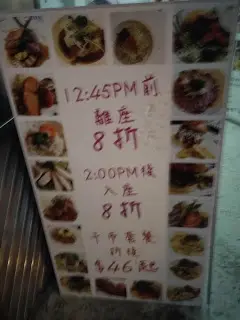 12:45PM 前
離座
8折
2:00PM後
入座
8折
午市套餐
折後
$46起